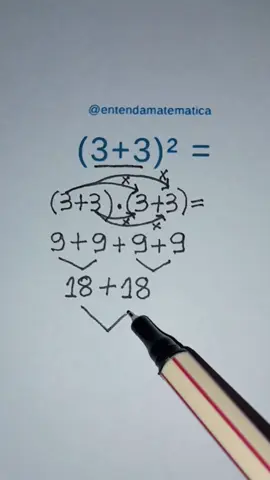 @entendamatematica
(3+3)² =
x x
(3+3)·(3+3)=
x x
9+9+9+9
18+18